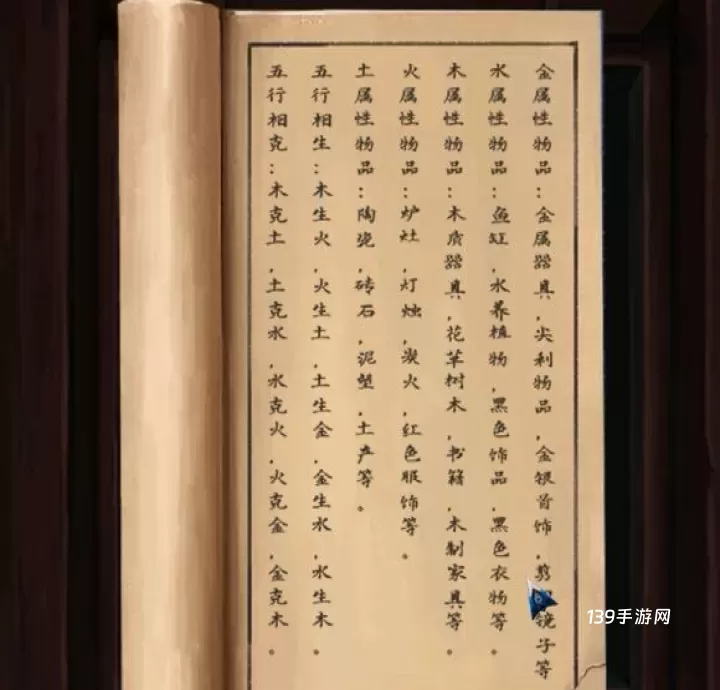 金属性物品:金属器具,尖利物品,金银首饰,剪 镜子等
水属性物品:鱼缸,水养植物,黑色饰品,黑色衣物等。
木属性物品:木质器具,花草树木,书籍,木制家具等。
火属性物品:炉灶,灯烛,炭火,红色服饰等。
土属性物品:陶瓷,砖石,泥塑,土产等。
五行相生:木生火,火生土,土生金,金生水,水生木。
五行相克:木克土,土克水,水克火,火克金,金克木。
139手游网